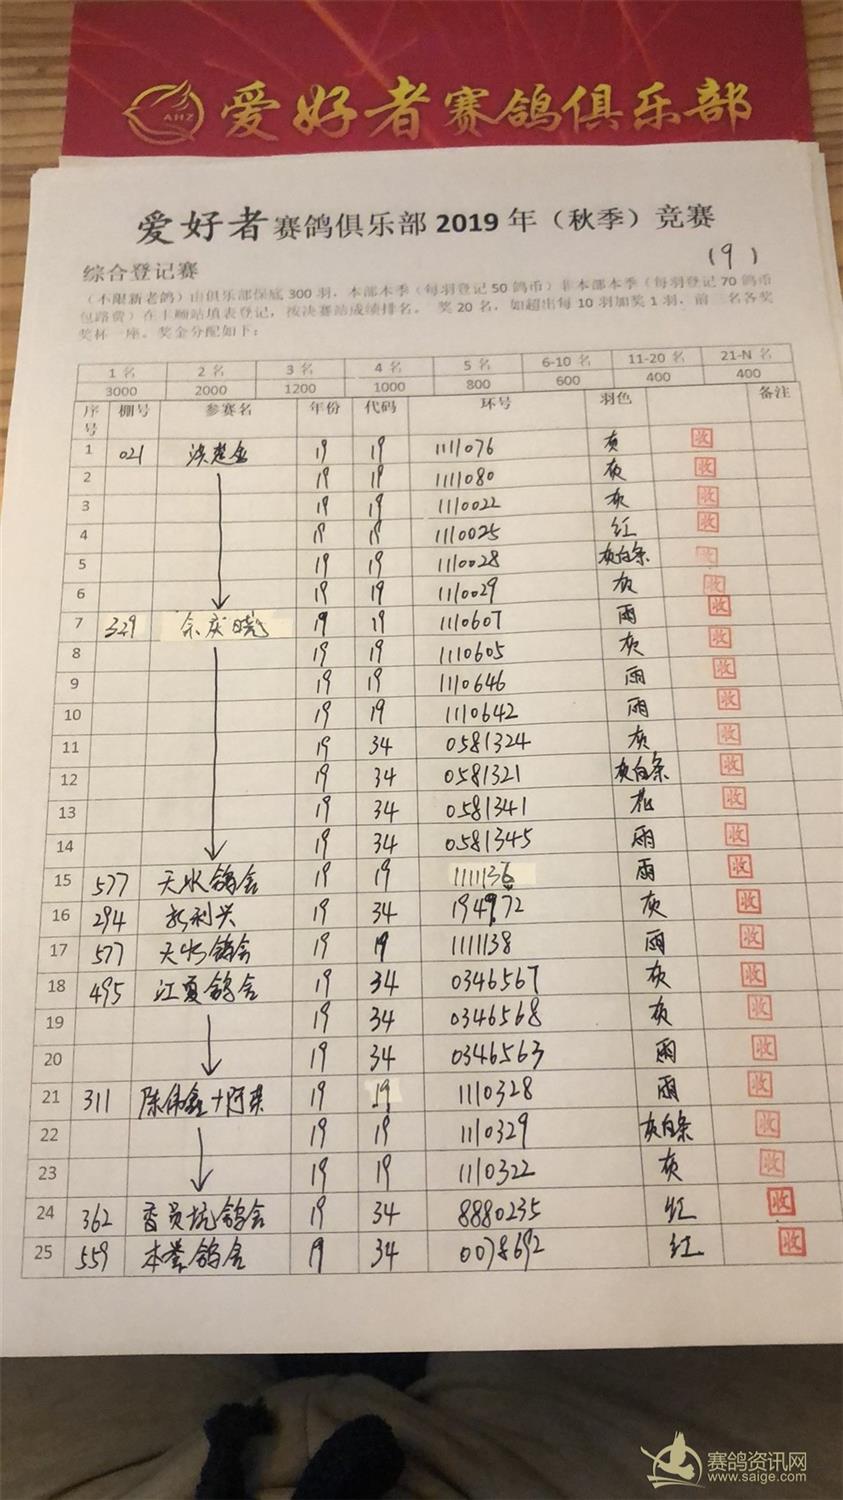 AHZ 爱好者赛鸽俱乐部
爱好者赛鸽俱乐部2019年（秋季）竞赛
(9)
综合登记赛
（不限新老鸽）由俱乐部保底300羽，本部本季（每羽登记50鸽币）非本部本季（每羽登记70鸽币
包路费）在丰顺站填表登记，按决赛站成绩排名。 奖20名，如超出每10羽加奖1羽，前三名各奖
奖杯一座。奖金分配如下：
1名 2名 3名 4名 5名 6-10名 11-20名 21-N名
3000 2000 1200 1000 800 600 400 400
序号 棚号 参赛名 年份 代码 环号 羽色 备注
1 021 洪楚金 19 19 1111076 灰 收
2 19 19 1111080 灰 收
3 19 19 1110022 灰 收
4 19 19 1110025 红 收
5 19 19 1110028 灰白条 收
6 19 19 1110029 灰 收
7 329 余庆晓 19 19 1110607 雨 收
8 19 19 1110605 灰 收
9 19 19 1110646 雨 收
10 19 19 1110642 雨 收
11 19 34 0581324 灰 收
12 19 34 0581321 灰白条 收
13 19 34 0581341 花 收
14 19 34 0581345 雨 收
15 577 天水鸽舍 19 19 1111136 雨 收
16 294 利兴 19 34 194972 灰 收
17 577 天水鸽舍 19 19 1111138 雨 收
18 495 江夏鸽舍 19 34 0346567 灰 收
19 19 34 0346568 灰 收
20 19 34 0346563 雨 收
21 311 陈伟鑫+阿 19 19 1110328 雨 收
22 19 19 1110329 灰白条 收
23 19 19 1110322 灰 收
24 362 香员坑鸽舍 19 34 8880235 红 收
25 559 本誉鸽舍 19 34 0078692 红 收
赛鸽资讯网
www.saige.com